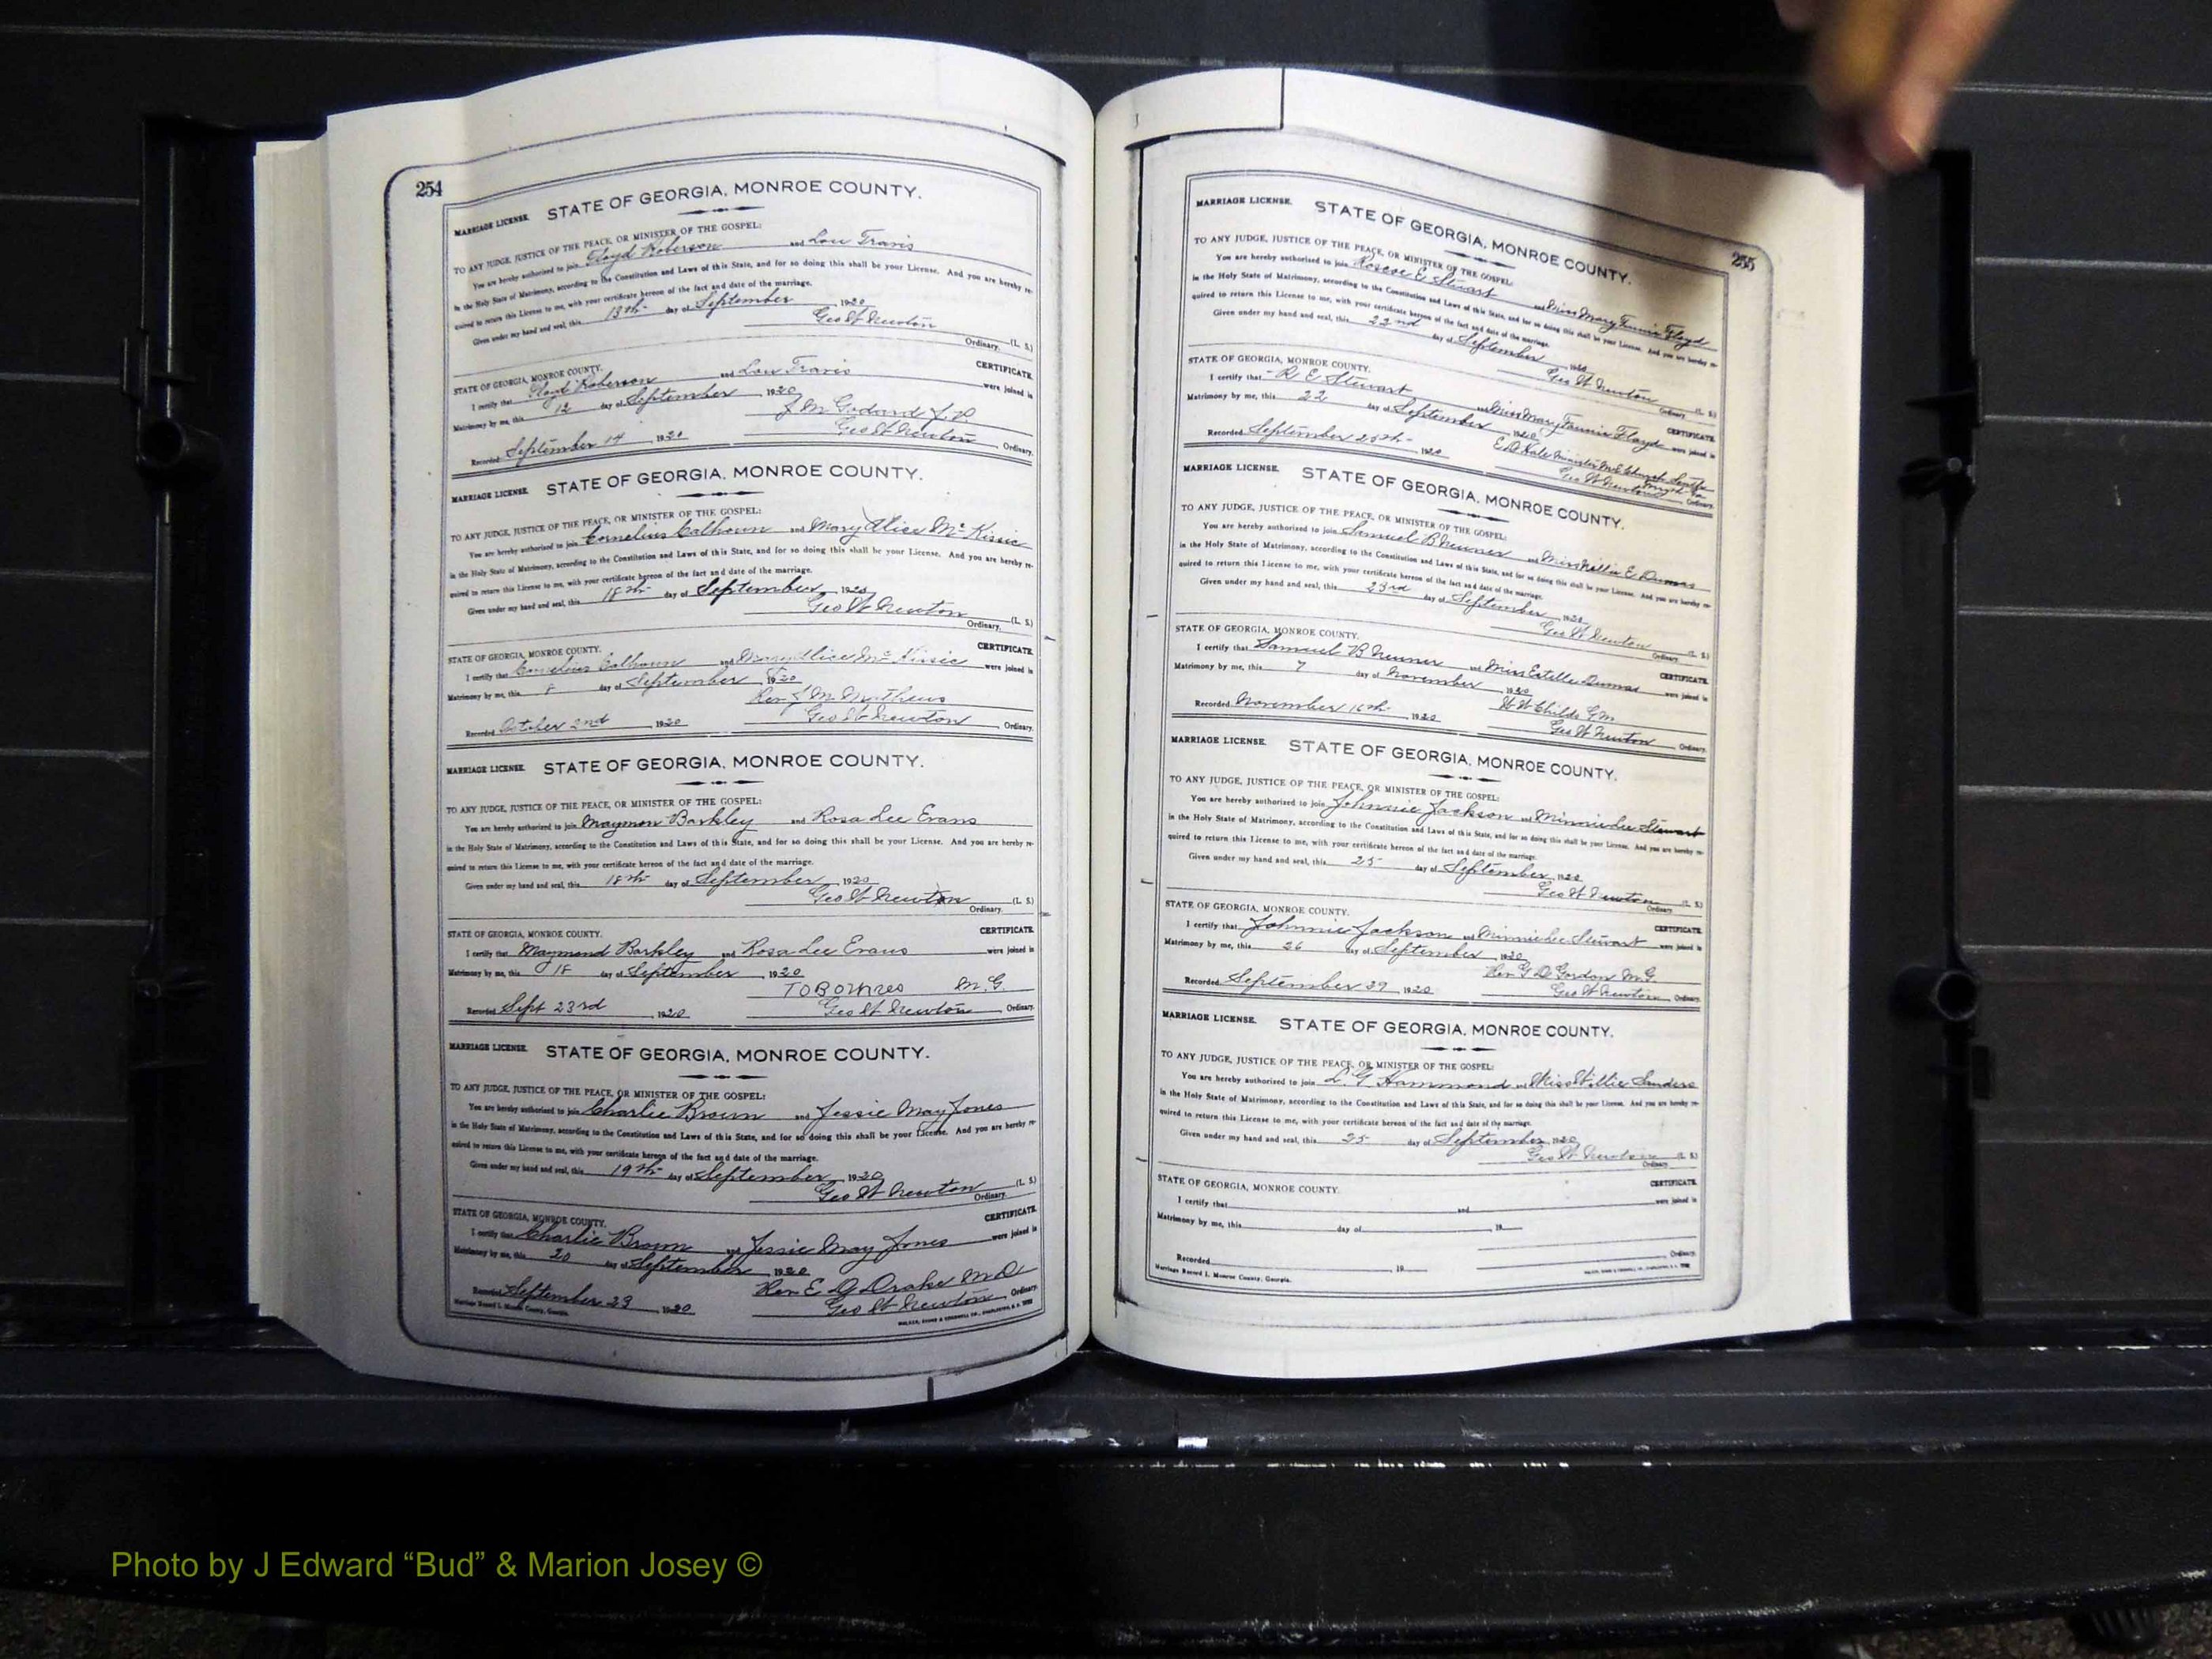 254
MARRIAGE LICENSE. STATE OF GEORGIA, MONROE COUNTY.
TO ANY JUDGE, JUSTICE OF THE PEACE, OR MINISTER OF THE GOSPEL:
You are hereby authorized to join Floyd Roberson and Lou Travis
in the Holy State of Matrimony, according to the Constitution and Laws of this State, and for so doing this shall be your License. And you are hereby re-
quired to return this License to me, with your certificate hereon of the fact and date of the marriage.
Given under my hand and seal, this 13th day of September 1920
Geo W Newton (L. S.)
Ordinary.
STATE OF GEORGIA, MONROE COUNTY. CERTIFICATE.
I certify that Floyd Roberson and Lou Travis were joined in
Matrimony by me, this 12 day of September, 1920
J M Godard J.P.
Recorded September 14, 1920 Geo W Newton, Ordinary.
MARRIAGE LICENSE. STATE OF GEORGIA, MONROE COUNTY.
TO ANY JUDGE, JUSTICE OF THE PEACE, OR MINISTER OF THE GOSPEL:
You are hereby authorized to join Cornelius Calhoun and Mary Alice McKissic
in the Holy State of Matrimony, according to the Constitution and Laws of this State, and for so doing this shall be your License. And you are hereby re-
quired to return this License to me, with your certificate hereon of the fact and date of the marriage.
Given under my hand and seal, this 18th day of September, 1920
Geo W Newton (L. S.)
Ordinary.
STATE OF GEORGIA, MONROE COUNTY. CERTIFICATE.
I certify that Cornelius Calhoun and Mary Alice McKissic were joined in
Matrimony by me, this day of September, 1920
Rev J M Matthews
Recorded October 2nd, 1920 Geo W Newton, Ordinary.
MARRIAGE LICENSE. STATE OF GEORGIA, MONROE COUNTY.
TO ANY JUDGE, JUSTICE OF THE PEACE, OR MINISTER OF THE GOSPEL:
You are hereby authorized to join Maymon Barkley and Rosa Lee Evans
in the Holy State of Matrimony, according to the Constitution and Laws of this State, and for so doing this shall be your License. And you are hereby re-
quired to return this License to me, with your certificate hereon of the fact and date of the marriage.
Given under my hand and seal, this 18th day of September, 1920
Geo W Newton (L. S.)
Ordinary.
STATE OF GEORGIA, MONROE COUNTY. CERTIFICATE.
I certify that Maymond Barkley and Rosa Lee Evans were joined in
Matrimony by me, this 18 day of September, 1920
M.G.
Recorded Sept 23rd, 1920 Geo W Newton, Ordinary.
MARRIAGE LICENSE. STATE OF GEORGIA, MONROE COUNTY.
TO ANY JUDGE, JUSTICE OF THE PEACE, OR MINISTER OF THE GOSPEL:
You are hereby authorized to join Charlie Brown and Jessie May Jones
in the Holy State of Matrimony, according to the Constitution and Laws of this State, and for so doing this shall be your License. And you are hereby re-
quired to return this License to me, with your certificate hereon of the fact and date of the marriage.
Given under my hand and seal, this 19th day of September, 1920
Geo W Newton (L. S.)
Ordinary.
STATE OF GEORGIA, MONROE COUNTY. CERTIFICATE.
I certify that Charlie Brown and Jessie May Jones were joined in
Matrimony by me, this 20 day of September, 1920
Rev E G Drake
Recorded September 23, 1920 Geo W Newton, Ordinary.
Marriage Record I, Monroe County, Georgia.
255
MARRIAGE LICENSE. STATE OF GEORGIA, MONROE COUNTY.
TO ANY JUDGE, JUSTICE OF THE PEACE, OR MINISTER OF THE GOSPEL:
You are hereby authorized to join Roscoe E Stewart and Miss Mary Fannie Floyd
in the Holy State of Matrimony, according to the Constitution and Laws of this State, and for so doing this shall be your License. And you are hereby re-
quired to return this License to me, with your certificate hereon of the fact and date of the marriage.
Given under my hand and seal, this 22nd day of September 1920
Geo W Newton (L. S.)
Ordinary.
STATE OF GEORGIA, MONROE COUNTY. CERTIFICATE.
I certify that R E Stewart and Miss Mary Fannie Floyd were joined in
Matrimony by me, this 22 day of September, 1920
E D Hale Minister M E Church South
Recorded September 25th, 1920 Geo W Newton Ordinary.
MARRIAGE LICENSE. STATE OF GEORGIA, MONROE COUNTY.
TO ANY JUDGE, JUSTICE OF THE PEACE, OR MINISTER OF THE GOSPEL:
You are hereby authorized to join Samuel B and Miss E Dumas
in the Holy State of Matrimony, according to the Constitution and Laws of this State, and for so doing this shall be your License. And you are hereby re-
quired to return this License to me, with your certificate hereon of the fact and date of the marriage.
Given under my hand and seal, this 23rd day of September, 1920
Geo W Newton (L. S.)
Ordinary.
STATE OF GEORGIA, MONROE COUNTY. CERTIFICATE.
I certify that Samuel B and Miss Estelle Dumas were joined in
Matrimony by me, this 7 day of November, 1920
W W Childs G.M.
Recorded November 16th, 1920 Geo W Newton Ordinary.
MARRIAGE LICENSE. STATE OF GEORGIA, MONROE COUNTY.
TO ANY JUDGE, JUSTICE OF THE PEACE, OR MINISTER OF THE GOSPEL:
You are hereby authorized to join Johnnie Jackson and Minnie Lee Stewart
in the Holy State of Matrimony, according to the Constitution and Laws of this State, and for so doing this shall be your License. And you are hereby re-
quired to return this License to me, with your certificate hereon of the fact and date of the marriage.
Given under my hand and seal, this 25 day of September, 1920
Geo W Newton (L. S.)
Ordinary.
STATE OF GEORGIA, MONROE COUNTY. CERTIFICATE.
I certify that Johnnie Jackson and Minnie Lee Stewart were joined in
Matrimony by me, this 26 day of September, 1920
Rev G D Gordon M.G.
Recorded September 29, 1920 Geo W Newton, Ordinary.
MARRIAGE LICENSE. STATE OF GEORGIA, MONROE COUNTY.
TO ANY JUDGE, JUSTICE OF THE PEACE, OR MINISTER OF THE GOSPEL:
You are hereby authorized to join L. G Hammond and Miss Willie Sanders
in the Holy State of Matrimony, according to the Constitution and Laws of this State, and for so doing this shall be your License. And you are hereby re-
quired to return this License to me, with your certificate hereon of the fact and date of the marriage.
Given under my hand and seal, this 25 day of September, 1920
Geo W Newton (L. S.)
Ordinary.
STATE OF GEORGIA, MONROE COUNTY. CERTIFICATE.
I certify that and were joined in
Matrimony by me, this day of 19
Recorded 19 Ordinary.
Marriage Record I, Monroe County, Georgia.
Photo by J Edward “Bud” & Marion Josey ©